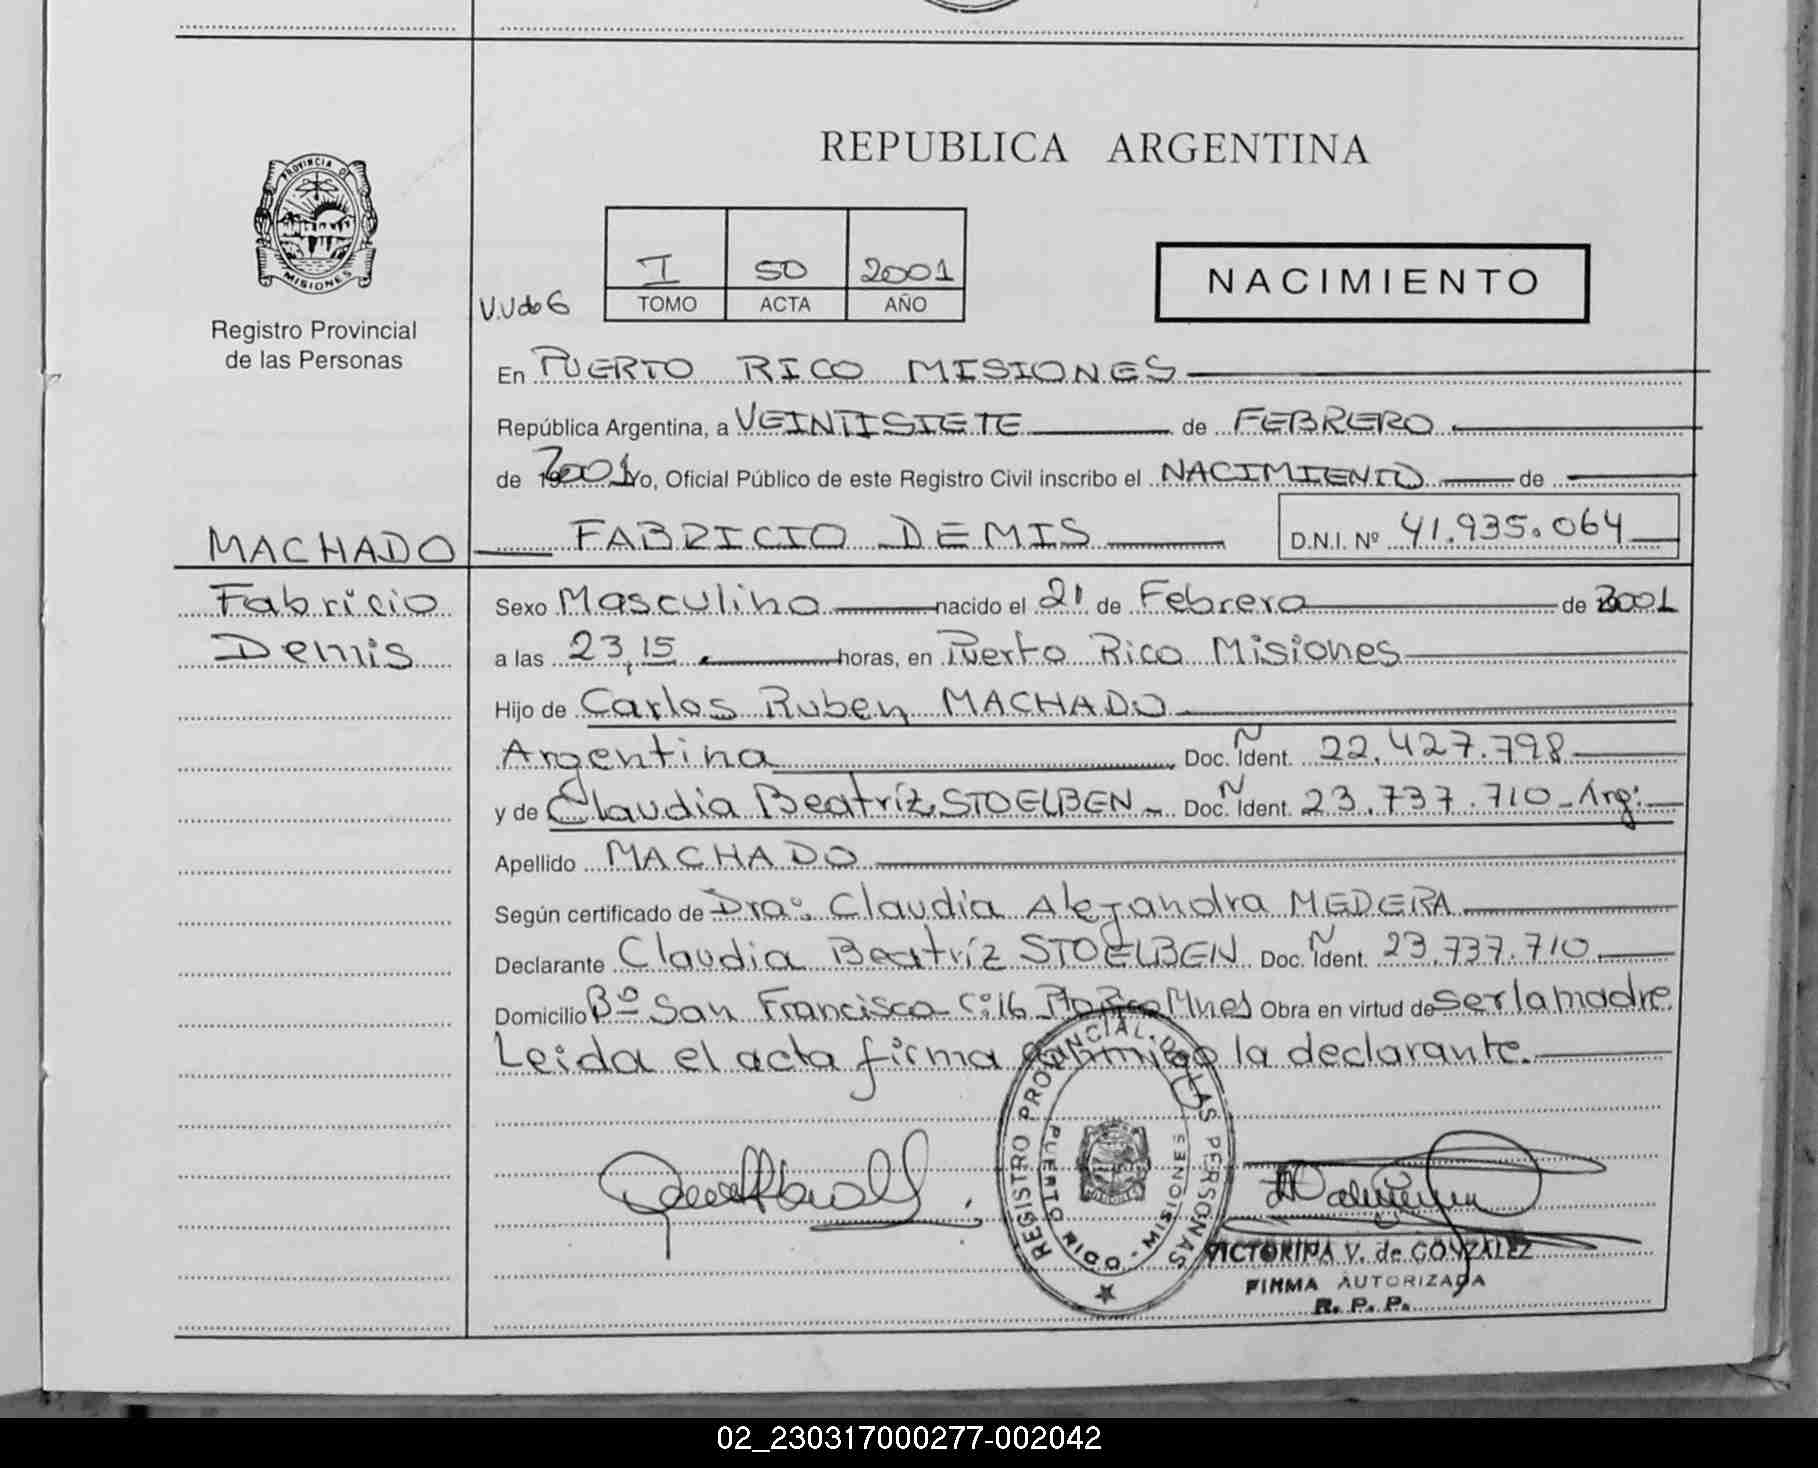 REPUBLICA ARGENTINA
PROVINCIA DE
MISIONES
Registro Provincial
de las Personas
I 50 2001
TOMO ACTA AÑO
NACIMIENTO
En PUERTO RICO MISIONES
República Argentina, a VEINTISIETE de FEBRERO
de 2001 Yo, Oficial Público de este Registro Civil inscribo el NACIMIENTO de
MACHADO FABRICIO DEMIS D.N.I. Nº 41.935.064
Fabricio
Demis
Sexo Masculino nacido el 21 de Febrero de 2001
a las 23,15 horas, en Puerto Rico Misiones
Hijo de Carlos Ruben MACHADO
Argentina Doc. Ident. 22.427.798
y de Claudia Beatríz STOELBEN Doc. Ident. 23.737.710 - Arg:
Apellido MACHADO
Según certificado de Dra: Claudia Alejandra MEDERA
Declarante Claudia Beatríz STOELBEN Doc. Ident. 23.737.710
Domicilio Bº San Francisco C:16 Pto Rico Mnes Obra en virtud de ser la madre
Leida el acta firma conmigo la declarante.
REGISTRO PROVINCIAL DE LAS PERSONAS
PUERTO RICO - MISIONES
VICTORINA V. de GONZALEZ
FIRMA AUTORIZADA
R. P. P.
02_230317000277-002042